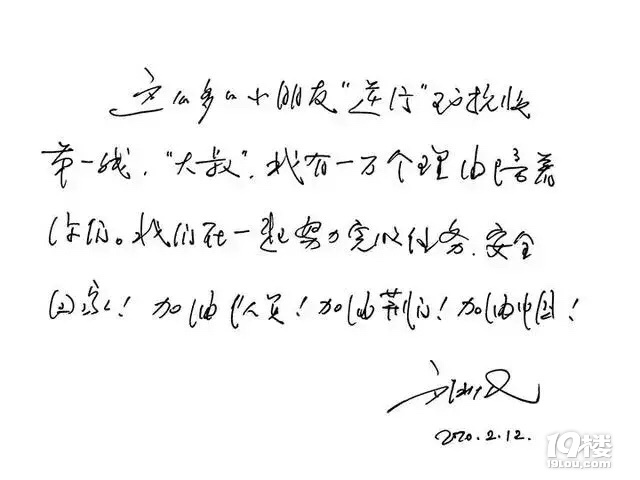 这么多的小朋友“逆行”到抗疫
第一线,“大叔”,我有一万个理由陪着
你们。我们在一起努力完成任务、安全
回家!加油队员!加油荆门!加油中国!
2020.2.12.
19楼
19lou.com